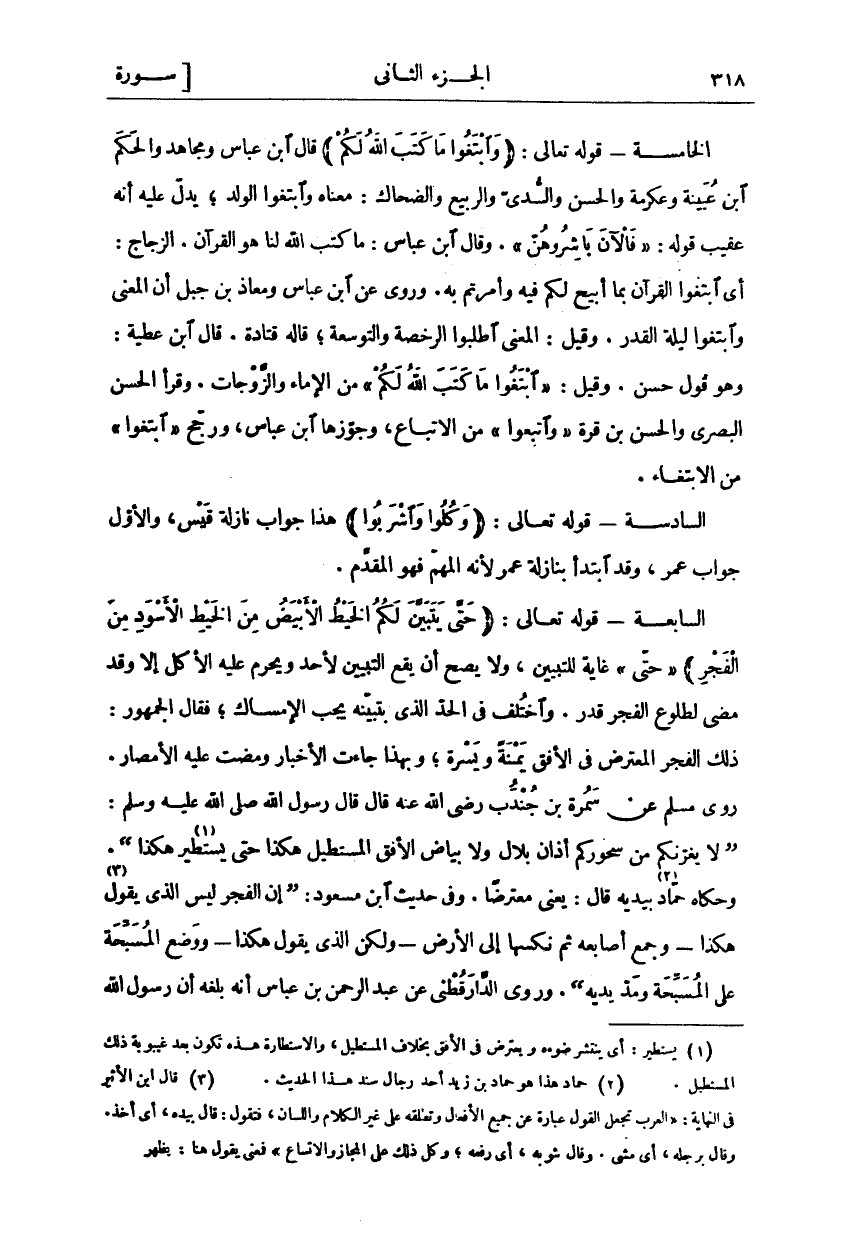 ٣١٨ الجـزء الثانى [ ســورة
الخامســة — قوله تعالى : ﴿ وَٱبْتَغُوا مَا كَتَبَ اللهُ لَكُمْ ﴾ قال ٱبن عباس ومجاهد والحَكَم
ٱبن عُيَينة وعكرمة والحسن والسُّدىّ والربيع والضحاك : معناه وٱبتغوا الولد ؛ يدلّ عليه أنه
عقيب قوله : « فَالْآنَ بَاشِرُوهُنّ » . وقال ٱبن عباس : ما كتب الله لنا هو القرآن . الزجاج :
أى ٱبتغوا القرآن بما أبيح لكم فيه وأمرتم به . وروى عن ٱبن عباس ومعاذ بن جبل أن المعنى
وٱبتغوا ليلة القدر . وقيل : المعنى ٱطلبوا الرخصة والتوسعة ؛ قاله قتادة . قال ٱبن عطية :
وهو قول حسن . وقيل : « ٱبْتَغُوا مَا كَتَبَ اللهُ لَكُمْ » من الإماء والزَّوْجات . وقرأ الحسن
البصرى والحسن بن قرة « وٱتبعوا » من الاتبـاع ، وجوّزها ٱبن عباس ، ورجّح « ٱبتغوا »
من الابتغـاء .
السادســة — قوله تعـالى : ﴿ وَكُلُوا وَٱشْرَبُوا ﴾ هذا جواب نازلة قَيْس ، والأوّل
جواب عمر ، وقد ٱبتدأ بنازلة عمر لأنه المهمّ فهو المقدَّم .
السابعــة — قوله تعـالى : ﴿ حَتَّى يَتَبَيَّنَ لَكُمُ الْخَيْطُ الْأَبْيَضُ مِنَ الْخَيْطِ الْأَسْوَدِ مِنَ
الْفَجْرِ ﴾ « حتّى » غاية للتبيين ، ولا يصح أن يقع التبيين لأحد ويحرم عليه الأكل إلا وقد
مضى لطلوع الفجر قدر . وٱختُلف فى الحدّ الذى بتبيّنه يجب الإمسـاك ؛ فقال الجمهور :
ذلك الفجر المعترض فى الأفق يَمْنَةً ويَسْرة ؛ وبهذا جاءت الأخبار ومضت عليه الأمصار .
روى مسلم عن سَمُرة بن جُنْدُب رضى الله عنه قال قال رسول الله صلى الله عليـه وسلم :
” لا يغرّنكم من سحوركم أذان بلال ولا بياض الأفق المستطيل هكذا حتى يستطير (١) هكذا “ .
وحكاه حمّاد (٢) بيديه قال : يعنى معترضًا . وفى حديث ٱبن مسعود : ” إن الفجر ليس الذى يقول (٣)
هكذا — وجمع أصابعه ثم نكسها إلى الأرض — ولكن الذى يقول هكذا — ووَضع المُسَبِّحَة
على المُسَبِّحَة ومَدّ يديه “ . وروى الدَّارَقُطْنى عن عبد الرحمن بن عباس أنه بلغه أن رسول الله
(١) يستطير : أى ينتشر ضوءه ويعترض فى الأفق بخلاف المستطيل ، والاستطارة هـذه تكون بعد غيبوبة ذلك
المستطيل . (٢) حماد هذا هو حماد بن زيد أحد رجال سند هـذا الحديث . (٣) قال ابن الأثير
فى النهاية : « العرب تجعل القول عبارة عن جميع الأفعال وتطلقه على غير الكلام واللسان ، فتقول : قال بيده ، أى أخذ .
وقال برجله ، أى مشى . وقال بثوبه ، أى رفعه ؛ وكل ذلك على المجاز والاتساع » فمعنى يقول هنا : يظهر